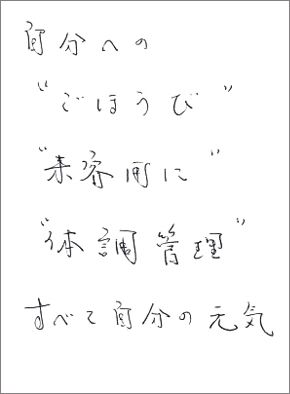 自分への
"ごほうび"
"来客用に"
"体調管理"
すべて自分の元気